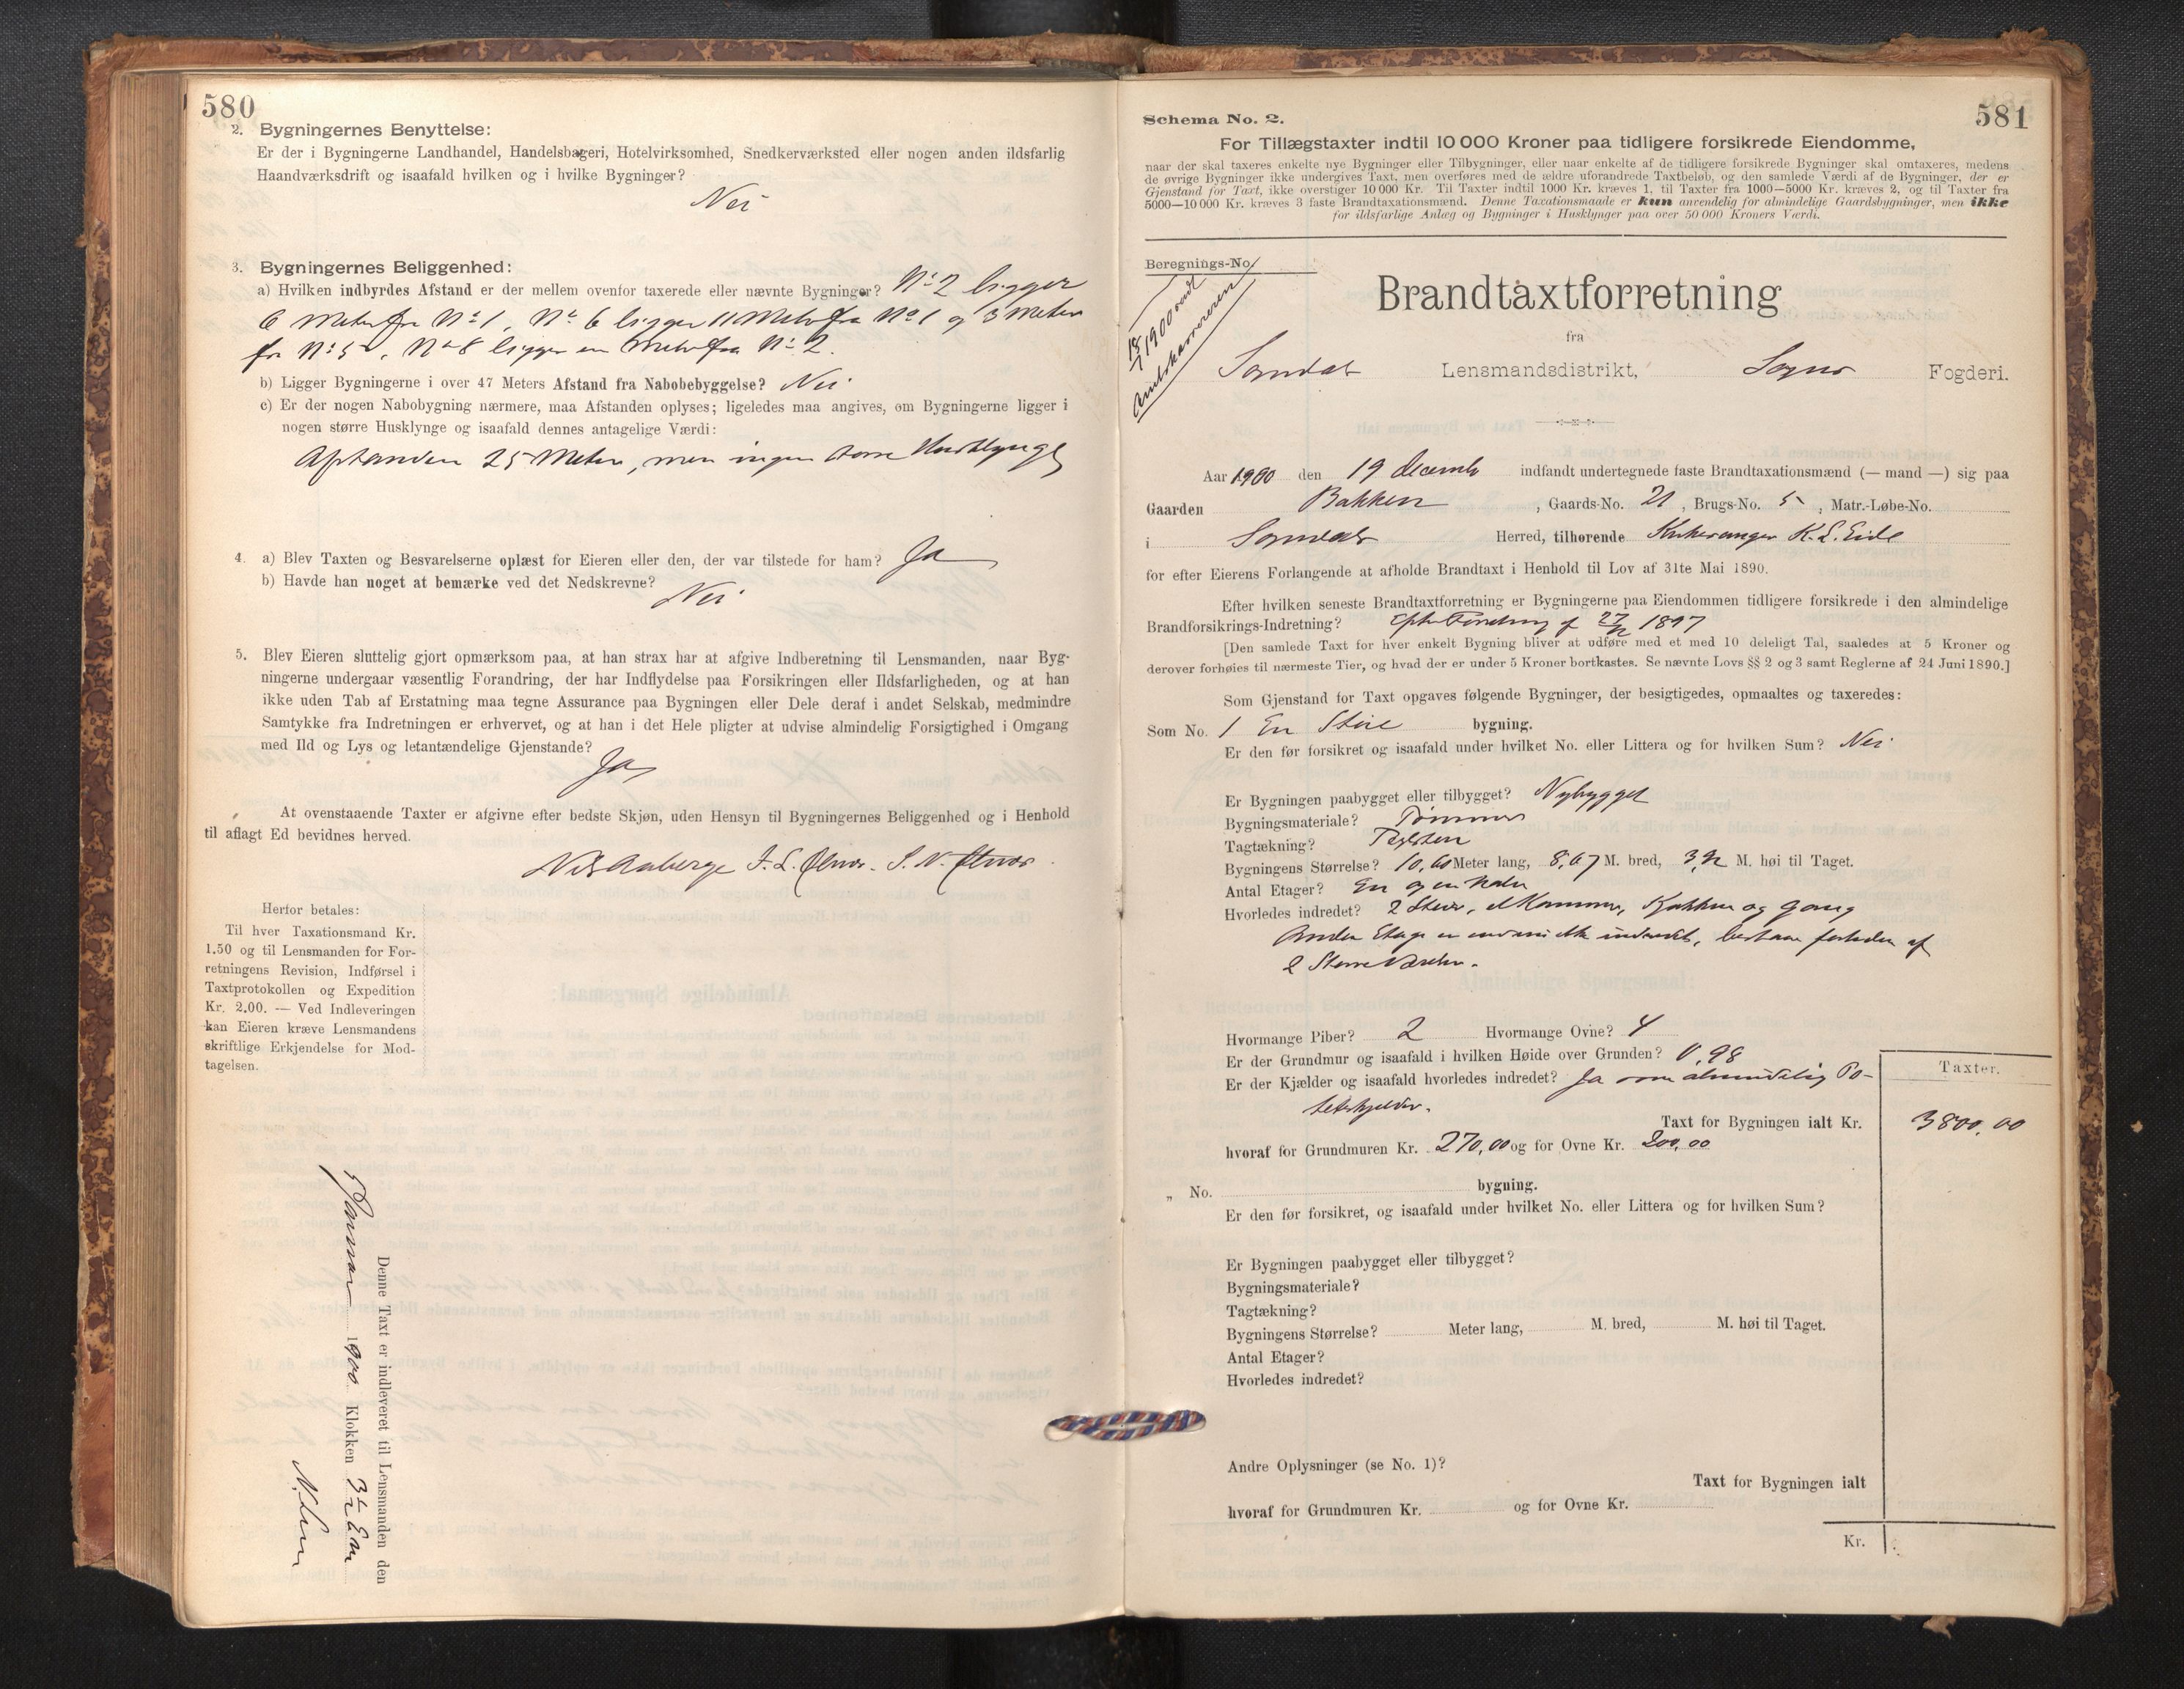 580
2. Bygningernes Benyttelse:
Er der i Bygningerne Landhandel, Handelsbageri, Hotelvirksomhed, Snedkerværksted eller nogen anden ildsfarlig
Haandværksdrift og isaafald hvilken og i hvilke Bygninger?
Nei
3. Bygningernes Beliggenhed:
a) Hvilken indbyrdes Afstand er der mellem ovenfor taxerede eller nævnte Bygninger? No 2 ligger
6 Meter fra No 1, No 6 ligger 11 Meter fra No 1 og 3 Meter
fra No 5, No 8 ligger en Meter fra No 2.
b) Ligger Bygningerne i over 47 Meters Afstand fra Nabobebyggelse? Nei
c) Er der nogen Nabobygning nærmere, maa Afstanden oplyses; ligeledes maa angives, om Bygningerne ligger i
nogen større Husklynge og isaafald dennes antagelige Værdi:
Afstanden 25 Meter, men ingen større Husklynge
4. a) Blev Taxten og Besvarelserne oplæst for Eieren eller den, der var tilstede for ham? Ja
b) Havde han noget at bemærke ved det Nedskrevne?
Nei
5. Blev Eieren sluttelig gjort opmærksom paa, at han strax har at afgive Indberetning til Lensmanden, naar Byg-
ningerne undergaar væsentlig Forandring, der har Indflydelse paa Forsikringen eller Ildsfarligheden, og at han
ikke uden Tab af Erstatning maa tegne Assurance paa Bygningen eller Dele deraf i andet Selskab, medmindre
Samtykke fra Indretningen er erhvervet, og at han i det Hele pligter at udvise almindelig Forsigtighed i Omgang
med Ild og Lys og letantændelige Gjenstande?
Ja
At ovenstaaende Taxter er afgivne efter bedste Skjøn, uden Hensyn til Bygningernes Beliggenhed og i Henhold
til aflagt Ed bevidnes herved.
Nils Aaberge
Herfor betales:
Til hver Taxationsmand Kr.
1.50 og til Lensmanden for For-
retningens Revision, Indførsel i
Taxtprotokollen og Expedition
Kr. 2.00. — Ved Indleveringen
kan Eieren kræve Lensmandens
skriftlige Erkjendelse for Mod-
tagelsen.
Denne Taxt er indleveret til Lensmanden den
Januar 1900 Klokken 3
581
Schema No. 2.
For Tillægstaxter indtil 10 000 Kroner paa tidligere forsikrede Eiendomme,
naar der skal taxeres enkelte nye Bygninger eller Tilbygninger, eller naar enkelte af de tidligere forsikrede Bygninger skal omtaxeres, medens
de øvrige Bygninger ikke undergives Taxt, men overføres med de ældre uforandrede Taxtbeløb, og den samlede Værdi af de Bygninger, der er
Gjenstand for Taxt, ikke overstiger 10 000 Kr. Til Taxter indtil 1000 Kr. kræves 1, til Taxter fra 1000—5000 Kr. kræves 2, og til Taxter fra
5000—10 000 Kr. kræves 3 faste Brandtaxationsmænd. Denne Taxationsmaade er kun anvendelig for almindelige Gaardsbygninger, men ikke
for ildsfarlige Anlæg og Bygninger i Husklynger paa over 50 000 Kroners Værdi.
Beregnings-No.
1900 sendt
Amtskassereren
Brandtaxtforretning
fra
Sogndal Lensmandsdistrikt, Sogns Fogderi.
Aar 1900 den 19 december indfandt undertegnede faste Brandtaxationsmænd (— mand —) sig paa
Gaarden Bakken, Gaards-No. 21, Brugs-No. 5, Matr.-Løbe-No.
i Sogndals Herred, tilhørende Kirkesanger K. L. Eide
for efter Eierens Forlangende at afholde Brandtaxt i Henhold til Lov af 31te Mai 1890.
Efter hvilken seneste Brandtaxtforretning er Bygningerne paa Eiendommen tidligere forsikrede i den almindelige
Brandforsikrings-Indretning? 1897
[Den samlede Taxt for hver enkelt Bygning bliver at udføre med et med 10 deleligt Tal, saaledes at 5 Kroner og
derover forhøies til nærmeste Tier, og hvad der er under 5 Kroner bortkastes. Se nævnte Lovs §§ 2 og 3 samt Reglerne af 24 Juni 1890.]
Som Gjenstand for Taxt opgaves følgende Bygninger, der besigtigedes, opmaaltes og taxeredes:
Som No. 1 En Stue bygning.
Er den før forsikret og isaafald under hvilket No. eller Littera og for hvilken Sum? Nei
Er Bygningen paabygget eller tilbygget? Nybygget
Bygningsmateriale? Tømmer
Tagtækning? Teglsten
Bygningens Størrelse? 10,60 Meter lang, 8,67 M. bred, M. høi til Taget.
Antal Etager? En og en halv
Hvorledes indredet? 2 Stuer, et Kammer, Kjøkken og gang
Anden Etage er endnu ikke indredet, bestaar forleden af
2 Større Værelser.
Hvormange Piber? 2 Hvormange Ovne? 4
Er der Grundmur og isaafald i hvilken Høide over Grunden? 0,98
Er der Kjælder og isaafald hvorledes indredet? Ja som almindelig Po-
tetkjelder.
Taxter.
Taxt for Bygningen ialt Kr. 3800,00
hvoraf for Grundmuren Kr. 270,00 og for Ovne Kr. 200,00
„ No. bygning.
Er den før forsikret, og isaafald under hvilket No. eller Littera og for hvilken Sum?
Er Bygningen paabygget eller tilbygget?
Bygningsmateriale?
Tagtækning?
Bygningens Størrelse? Meter lang, M. bred, M. høi til Taget.
Antal Etager?
Hvorledes indredet?
Andre Oplysninger (se No. 1)?
Taxt for Bygningen ialt
hvoraf for Grundmuren Kr. og for Ovne Kr.
Kr.